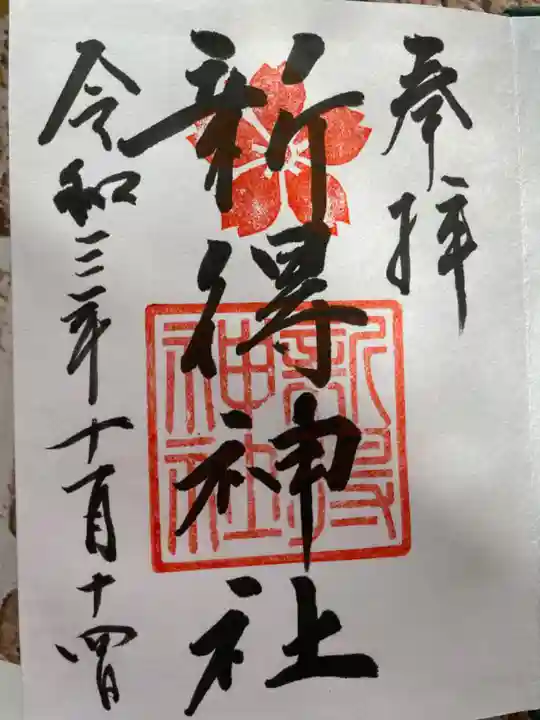 奉拝
新得神社
新得神社
令和三年十一月十四日